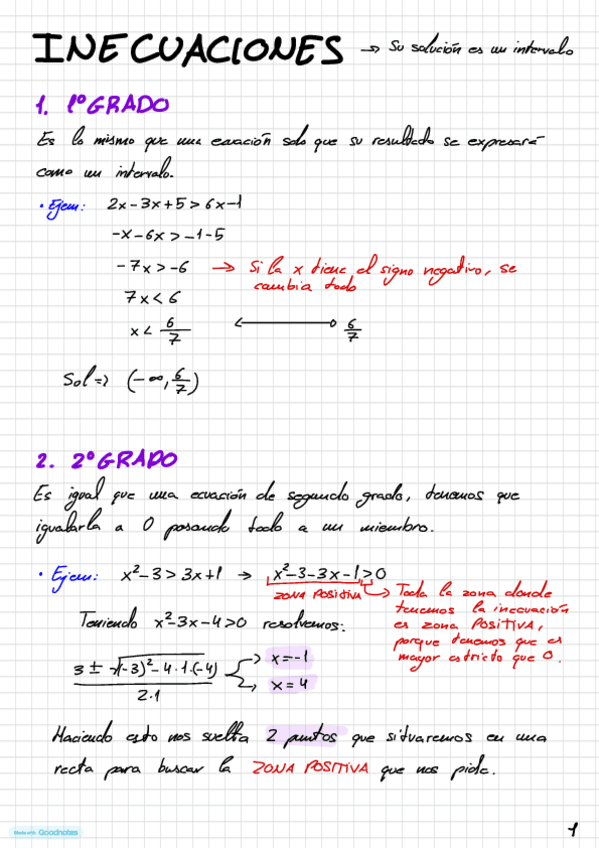 INECUACIONES → Su solución es un intervalo
1. 1º GRADO
Es lo mismo que una ecuación solo que su resultado se expresará
como un intervalo.
• Ejem: 2x-3x+5>6x-1
-x-6x>-1-5
-7x>-6 → Si la x tiene el signo negativo, se
cambia todo
7x<6
x< 6/7 6/7
Sol => (-∞, 6/7)
2. 2º GRADO
Es igual que una ecuación de segundo grado, tenemos que
igualarla a 0 pasando todo a un miembro.
• Ejem: x²-3>3x+1 → x²-3-3x-1>0
ZONA POSITIVA → Toda la zona donde
tenemos la inecuación
es zona POSITIVA,
porque tenemos que es
mayor estricto que 0.
Teniendo x²-3x-4>0 resolvemos:
3 ± √(-3)²-4·1·(-4) / 2·1
x=-1
x=4
Haciendo esto nos suelta 2 puntos que situaremos en una
recta para buscar la ZONA POSITIVA que nos pide.
Made with Goodnotes
1